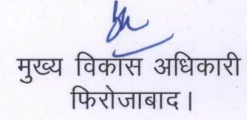 मुख्य विकास अधिकारी
फिरोजाबाद।